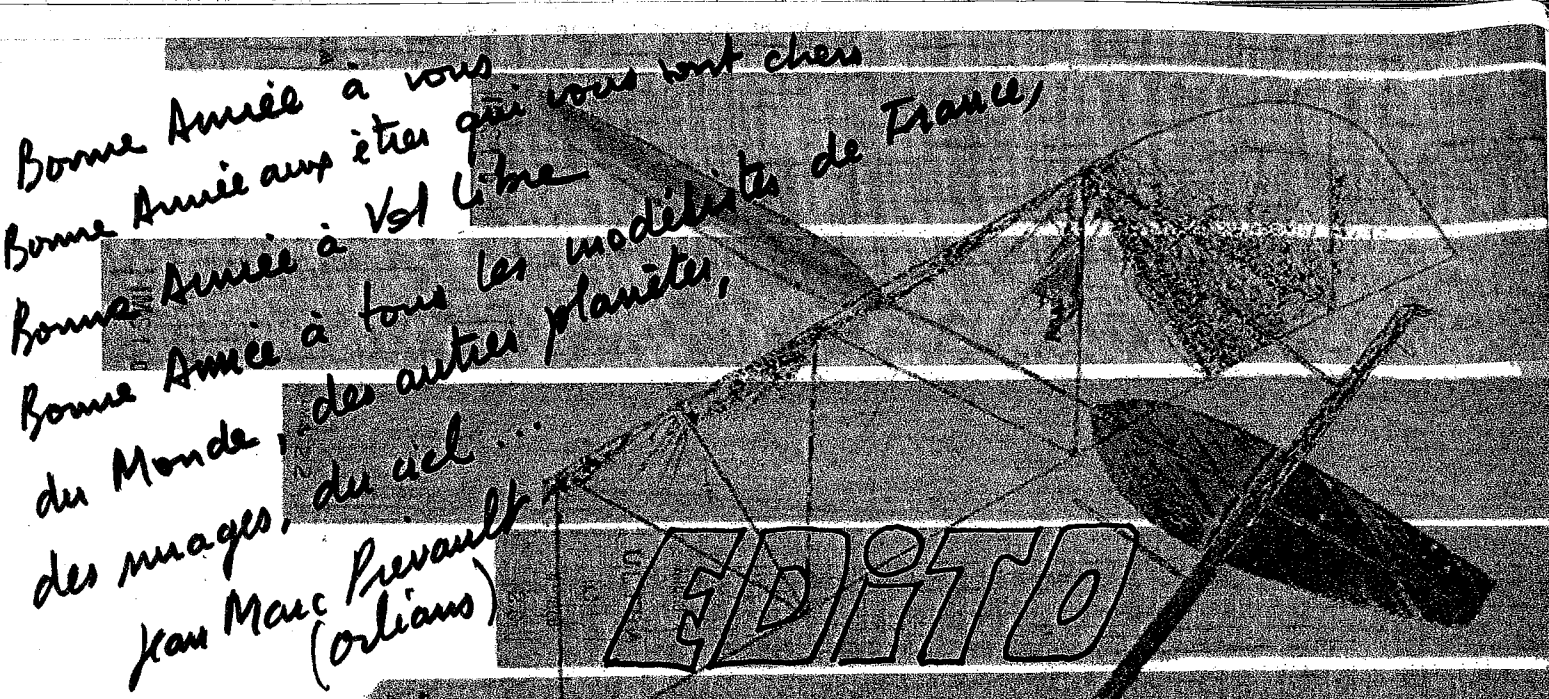 Bonne Année à vous
Bonne Année aux êtres qui vous sont chers
Bonne Année à Vol Libre
Bonne Année à tous les modélistes de France,
du Monde, des autres planètes,
des nuages, du ciel ...
Jean Marc Prevault
(Orléans)
EDiTO